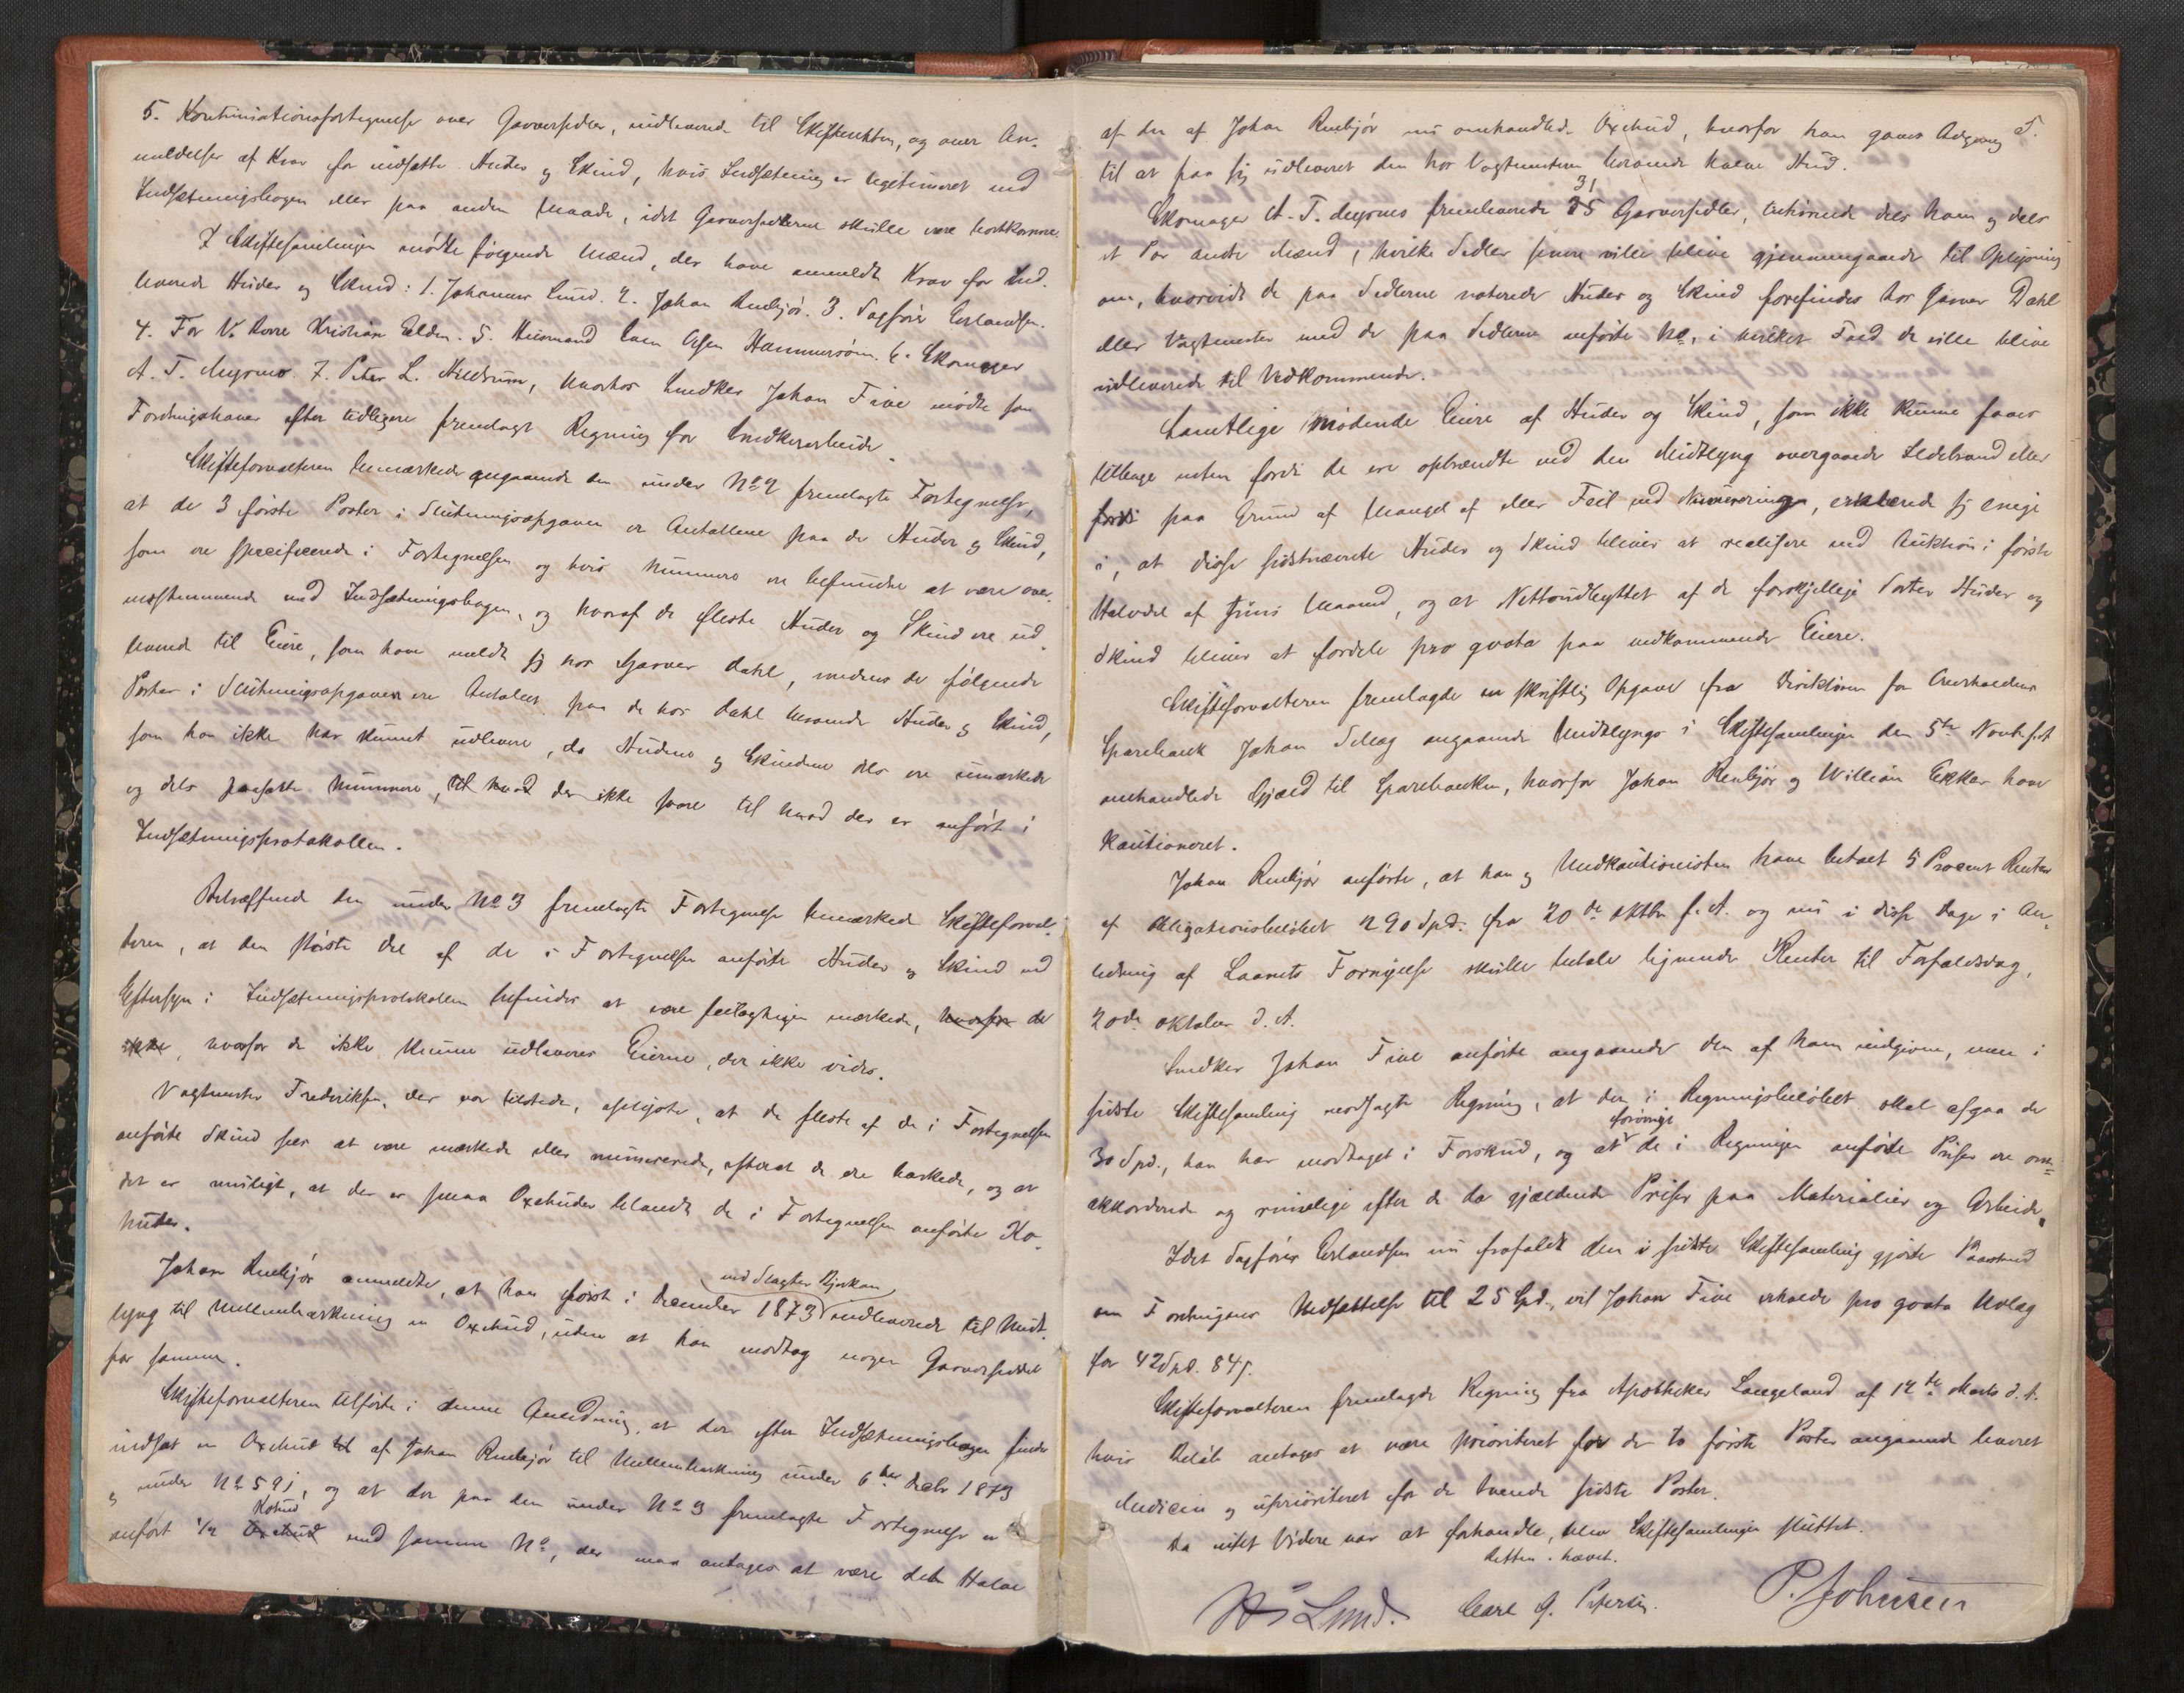 5. Kontinuationsfortegnelse over Garversedler, indleverede til Skifteretten, og over An-
meldelser af Krav for indsatte Huder og Skind, hvis Indsætning er legitimeret ved
Indsætningsbogen eller paa anden Maade, idet Garversedlerne skulle være bortkomne.
I Skiftesamlingen mødte følgende Mænd, der have anmeldt Krav for Ind-
leverede Huder og Skind: 1. Johannes Lund. 2. Johan Renbjør. 3. Sagfører Erlandsen.
4. For N. Kristian Elden. 5. Huusmand Olsen Hammersøm. 6. Skomager
A. T. Myrmo. 7. Peter L. Mildrum, hvorhos Snedker Johan Five mødte som
Fordringshaver efter tidligere fremlagt Regning for Snedkerarbeide.
Skifteforvalteren bemærkede angaaende den under No 2 fremlagte Fortegnelse,
at de 3 første Poster i Slutningsopgaven er Antallene paa de Huder og Skind,
som ere specificerede i Fortegnelsen og hvis Nummere ere befundne at være over-
ensstemmende med Indsætningsbogen, og hvoraf de fleste Huder og Skind ere ud-
leverede til Eiere, som have meldt sig hos Garver Dahl, medens de følgende
Poster i Slutningsopgaven ere Antallet paa de hos Dahl beroende Huder og Skind,
som han ikke har kunnet udlevere, da Huderne og Skindene dels ere umærkede
og dels paasatte Nummere, til hvad der ikke svare til hvad der er anført i
Indsætningsprotokollen.
Betræffende den under No 3 fremlagte Fortegnelse bemærkede Skifteforval-
teren, at den største Del af de i Fortegnelsen anførte Huder og Skind ved
Eftersyn i Indsætningsprotokollen befindes at være feilagtigen mærkede, hvorfor de
ikke, hvorfor de ikke kunne udleveres Eierne, der ikke vides.
Vagtmester Frederiksen, der var tilstede, oplyste, at de fleste af de i Fortegnelsen
anførte Skind sees at være mærkede eller numererede, efterat de ere barkede, og at
det er muligt, at der er smaa Oxehuder blandt de i Fortegnelsen anførte Ko-
huder.
Johan Renbjør anmeldte, at han først i December 1873 ved Slagter Bjerkan indleverede til Midt-
lyng til Mellembarkning en Oxehud, uden at han modtog nogen Garverseddel
for samme.
Skifteforvalteren tilførte i denne Anledning, at der efter Indsætningsbogen findes
indsat en Oxehud til af Johan Renbjør til Mellembarkning under 6te Decbr 1873
og under No 591, og at der paa den under No 3 fremlagte Fortegnelse er
anført 1/2 Oxehud Kohud med samme No, der maa antages at være det Halve
af den af Johan Renbjør nu omhandlede Oxehud, hvorfor han gaves Adgang
til at faa sig udleveret den hos Vagtmesteren beroende halve Hud.
Skomager A. T. Myrmo fremleverede 25 31 Garversedler, tilhørende dels ham og dels
et Par andre Mænd, hvilke Sedler senere ville blive gjennemgaaede til Oplysning
om, hvorvidt de paa Sedlerne noterede Huder og Skind forefindes hos Garver Dahl
eller Vagtmester med de paa Sedlerne anførte No, i hvilket Fald de ville blive
udleverede til Vedkommende.
Samtlige Mødende Eiere af Huder og Skind, som ikke kunne faaes
tilbage enten fordi de ere opbrændte ved den Midtlyng overgaaede Ildebrand eller
fordi paa Grund af Mangel af eller Feil ved Numereringen, erklærede sig enige
i, at disse sidstnævnte Huder og Skind bliver at realisere ved Auktion i første
Halvdel af Juni Maaned, og at Nettoudbyttet af de forskjellige Sorter Huder og
Skind bliver at fordele pro qvota paa vedkommende Eiere.
Skifteforvalteren fremlagde en skriftlig Opgave fra Direktøren for Værdalens
Sparebank Johan Selnæg angaaende Midtlyngs i Skiftesamlingen den 5te Novb. f. A.
omhandlede Gjæld til Sparebanken, hvorfor Johan Renbjør og William Ekker have
kautioneret.
Johan Renbjør anførte, at han og Medkautionisten have betalt 5 Procent Renter
af Obligationsbeløbet 290 Spd. fra 20de oktbr f. A. og nu i disse Dage i An-
ledning af Laanets Fornyelse skulle betale lignende Renter til Forfaldsdag,
20de oktober d. A.
Snedker Johan Five anførte angaaende den af ham indgivne, men i
sidste Skiftesamling modsagte Regning, at der i Regningsbeløbet skal afgaa de
30 Spd., han har modtaget i Forskud, og at forøvrigt de i Regningen anførte Priser ere om-
akkorderede og rimelige efter de da gjældende Priser paa Materialier og Arbeide.
Idet Sagfører Erlandsen nu frafaldt den i sidste Skiftesamling gjorte Paastand
om Fordringens Nedsættelse til 25 Spd., vil Johan Five erholde pro qvota Udlæg
for 42 Spd. 84 s.
Skifteforvalteren fremlagde Regning fra Apotheker Langeland af 12te Marts d. A.
hvis Beløb antages at være prioriteret for de to første Poster angaaende leveret
Medicin og uprioriteret for de tvende sidste Poster.
Da intet Videre var at forhandle, blev Skiftesamlingen sluttet.
Retten hævet.
Lund. Carl G. Petersen. P. Johnsen